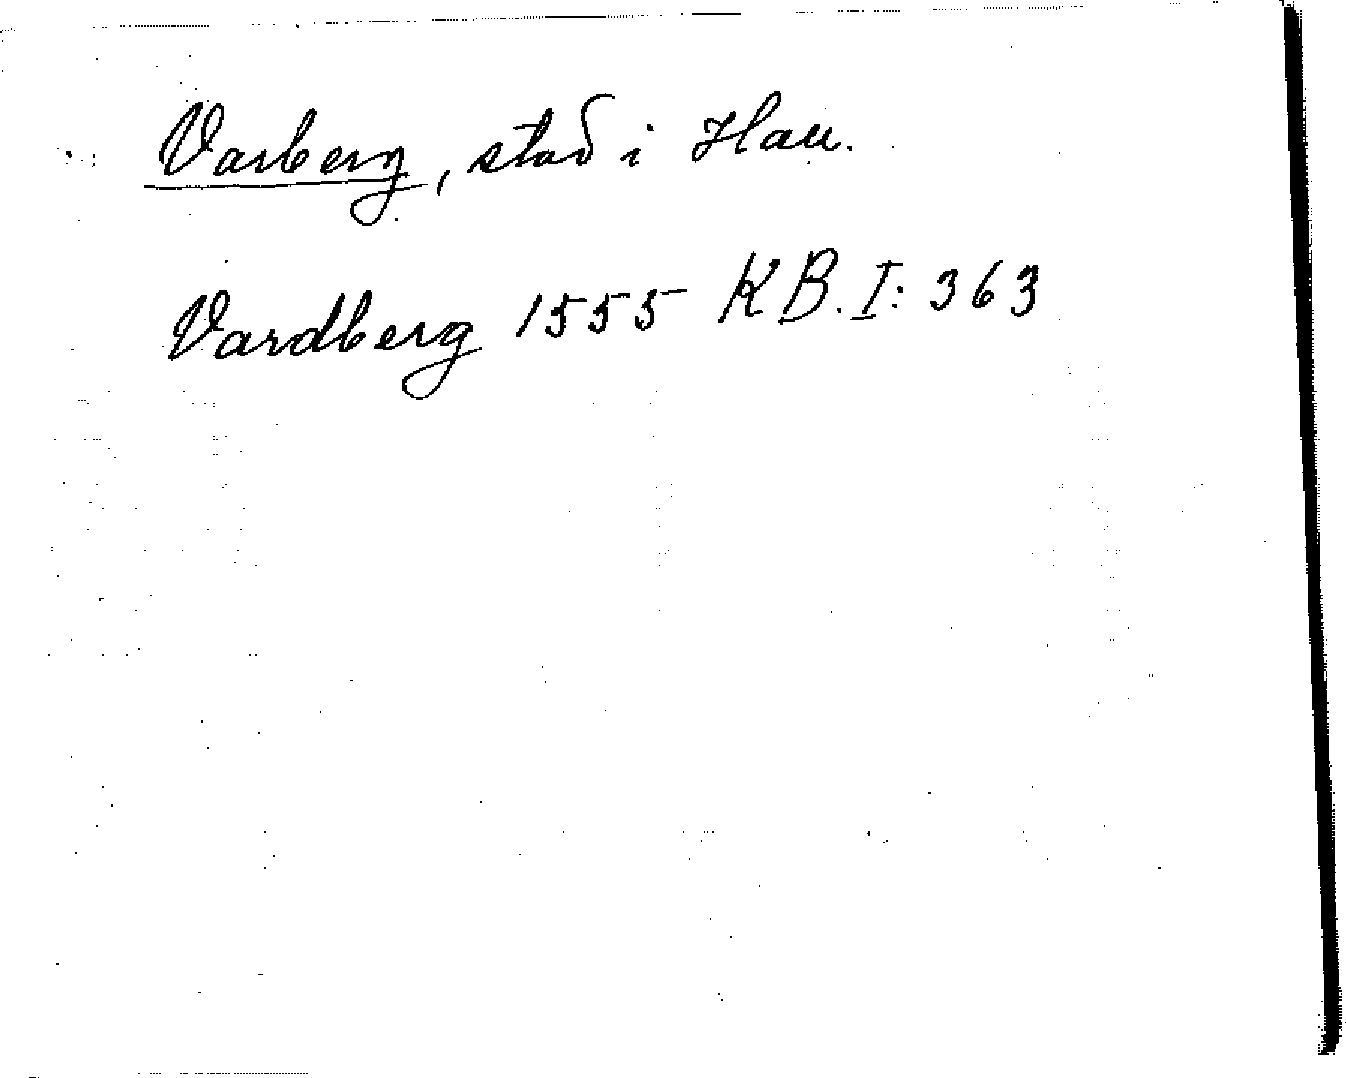 Varberg, stad i Hall.
Vardberg 1555 KB. I: 363